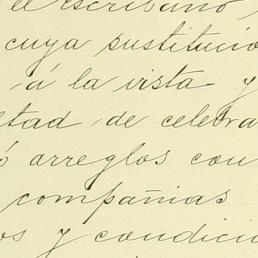 el escribano
cuya sustitució
á la vista y
ltad de celebra
ó arreglos con
compañias
os y condicio